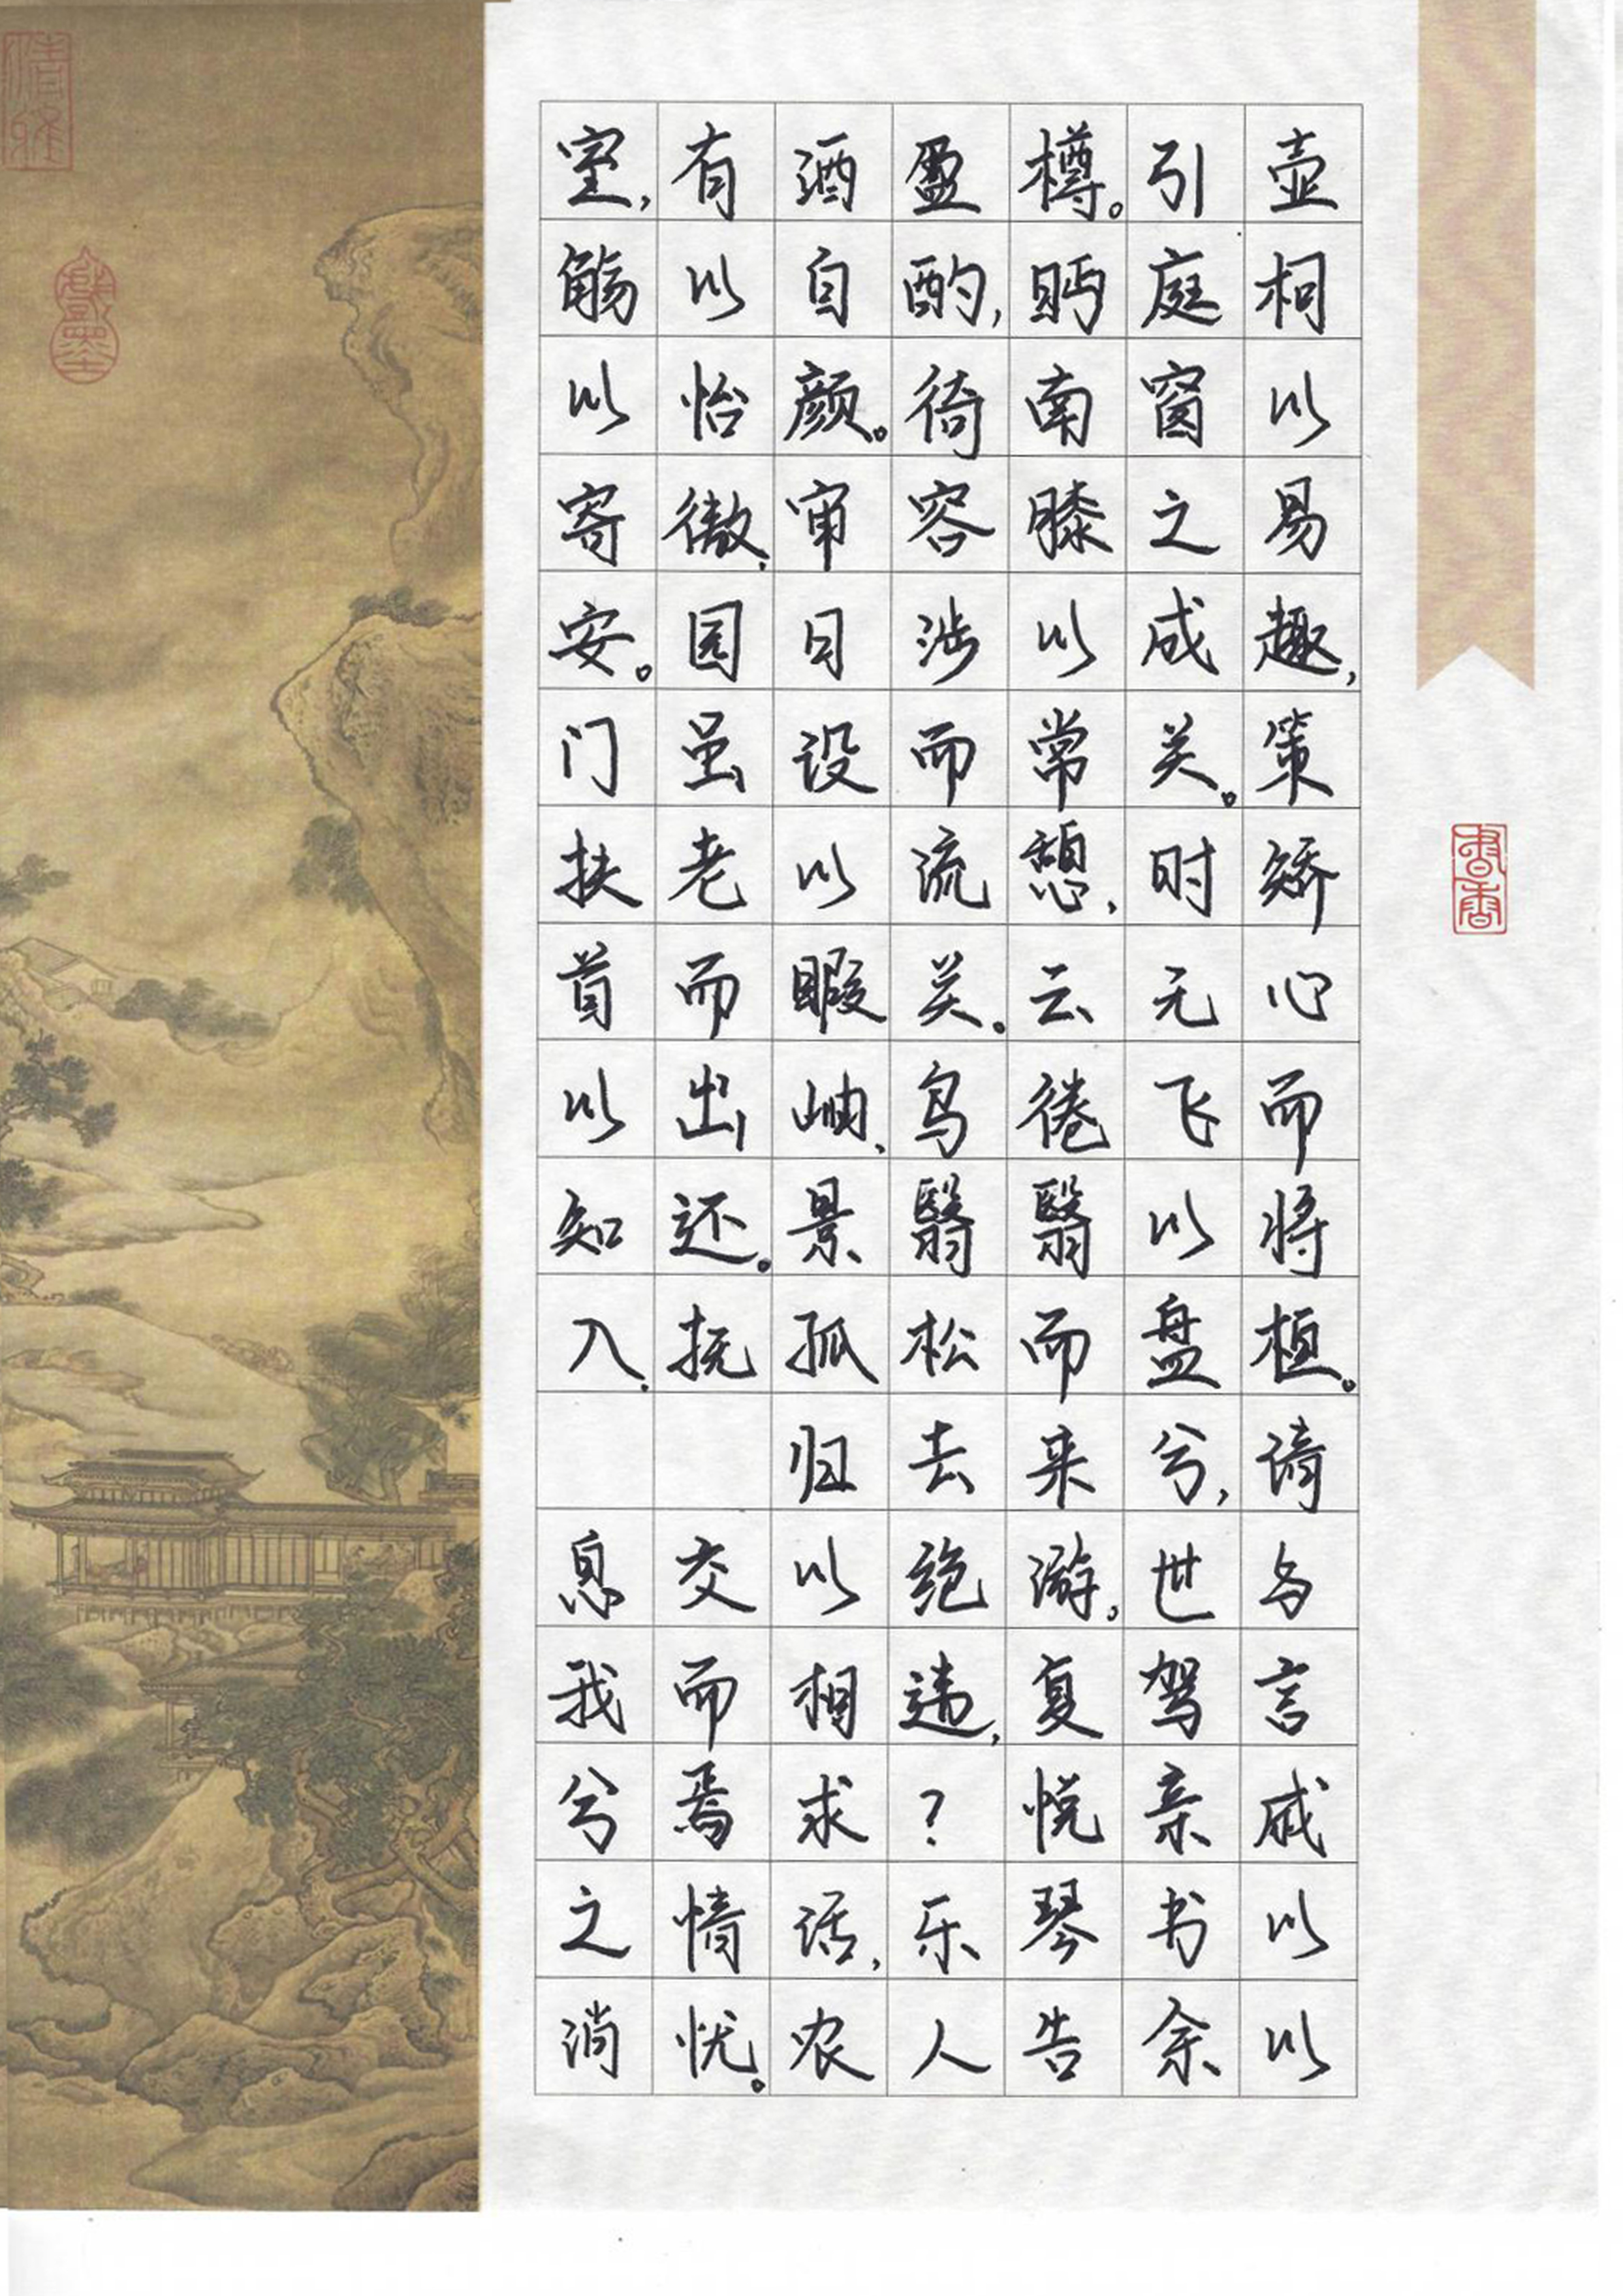 室,有酒盈樽。引壶
觞以自酌,眄庭柯
以怡颜。倚南窗以
寄傲,审容膝之易
安。园日涉以成趣,
门虽设而常关。策
扶老以流憩,时矫
首而暇关。云无心
以出岫,鸟倦飞而
知还。景翳翳以将
入,抚孤松而盘桓。
归去来兮,请
息交以绝游,世与
我而相违,复驾言
兮焉求?悦亲戚
之情话,乐琴书以
消忧。农人告余以
书香